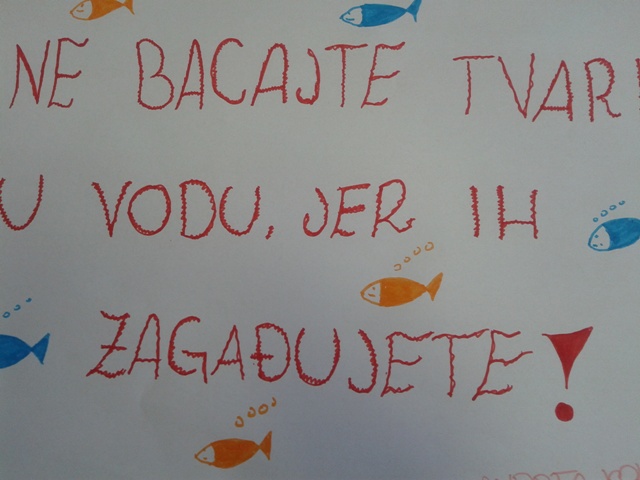 NE BACAJTE TVARI
U VODU, JER IH
ZAGAĐUJETE!